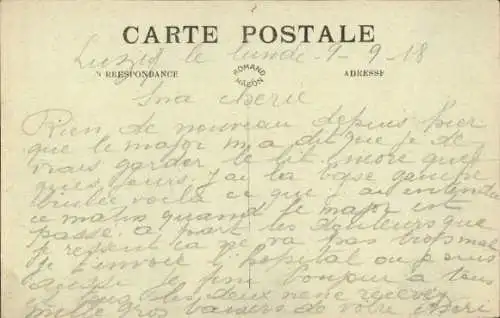 CARTE POSTALE
le lundi 9-9-18
RRESPONDANCE
ROMAND
MACON
ADRESSE
Ma cherie
Rien de nouveau depuis hier
que le major m a dit que je de
vrais garder le lit encore quel
ques jours j'ai la base
brulee voila ce que j ai entendu
ce matin quand le major est
passe. a part les douleurs que
je ressent ca ne va pas trop mal
je t'envoie l'hopital ou je suis
je fini bonjour a tous
et vous les deux recevez
mille gros baisers de votre cheri